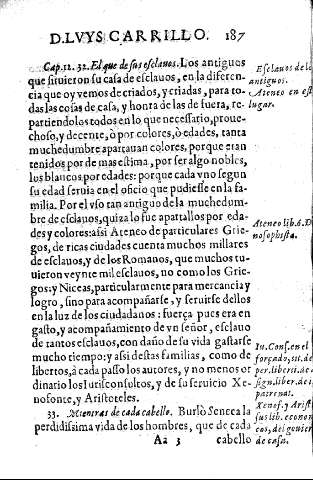 D. LVYS CARRILLO. 187
Cap. 12. 32. El que de sus esclavos. Los antiguos
que siruieron su casa de esclauos, en la diferen
cia que oy vemos de criados, y criadas, para to-
das las cosas de casa, y honra de las de fuera, re-
partiendolos todos en lo que necessario, proue-
choso, y decente, ò por colores, ò edades, tanta
muchedumbre apartauan colores, porque eran
tenidos por de mas estima, por ser algo nobles,
los blancos por edades: porque cada vno segun
su edad seruia en el oficio que pudiesse en la fa-
milia. Por el vso tan antiguo de la muchedum-
bre de esclauos, quiza lo fue apartallos por eda-
des y colores: assi Ateneo de particulares Grie-
gos, de ricas ciudades cuenta muchos millares
de esclauos, y de los Romanos, que muchos tu-
uieron veynte mil esclauos, no como los Grie-
gos: y Niceas, particularmente para mercancia y
logro, sino para acompañarse, y seruirse dellos
en la luz de los ciudadanos: fuerça pues era en
gasto, y acompañamiento de vn señor, esclauo
de tantos esclauos, con daño de su vida gastarse
mucho tiempo: y assi destas familias, como de
libertos, à cada passo los autores, y no menos or
dinario los Iurisconsultos, y de su seruicio Xe-
nofonte, y Aristoteles.
33. Mientras de cada cabello. Burlò Seneca la
perdidissima vida de los hombres, que de cada
Aa 3 cabello
Esclauos de los
antiguos.
Ateneo en este
lugar.
Ateneo lib. 6. D
nosophista.
In. Cons. en el
forçado, tit. de
per. liberti. de
sign. liber. de i
patronat.
Xenof. y Arist
sus lib. econom
cos, del gouier
de casa.